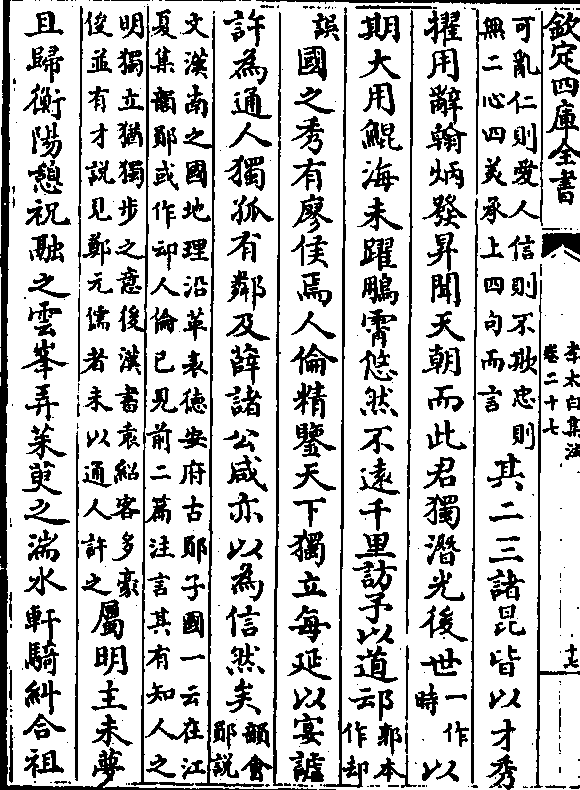 欽定四庫全書
李太白集注
卷二十七
十七
可亂仁則愛人信則不欺忠則
無二心四美承上四句而言
其二三諸昆皆以才秀
擢用辭翰炳發昇聞天朝而此君獨潛光後世一作時以
期大用鯤海未躍鵬霄悠然不遠千里訪予以道䢵郭本作却
誤國之秀有廖侯焉人倫精鑒天下獨立每延以宴謔
許為通人獨孤有鄰及薛諸公咸亦以為信然矣韻會鄖説
文漢南之國地理沿革表德安府古鄖子國一云在江
夏集韻鄖或作䢵人倫已見前二篇注言其有知人之
明獨立猶獨步之意後漢書袁紹客多豪
俊並有才説見鄭元儒者未以通人許之
屬明主未夢
且歸衡陽憩祝融之雲峯弄茱萸之湍水軒騎糾合祖